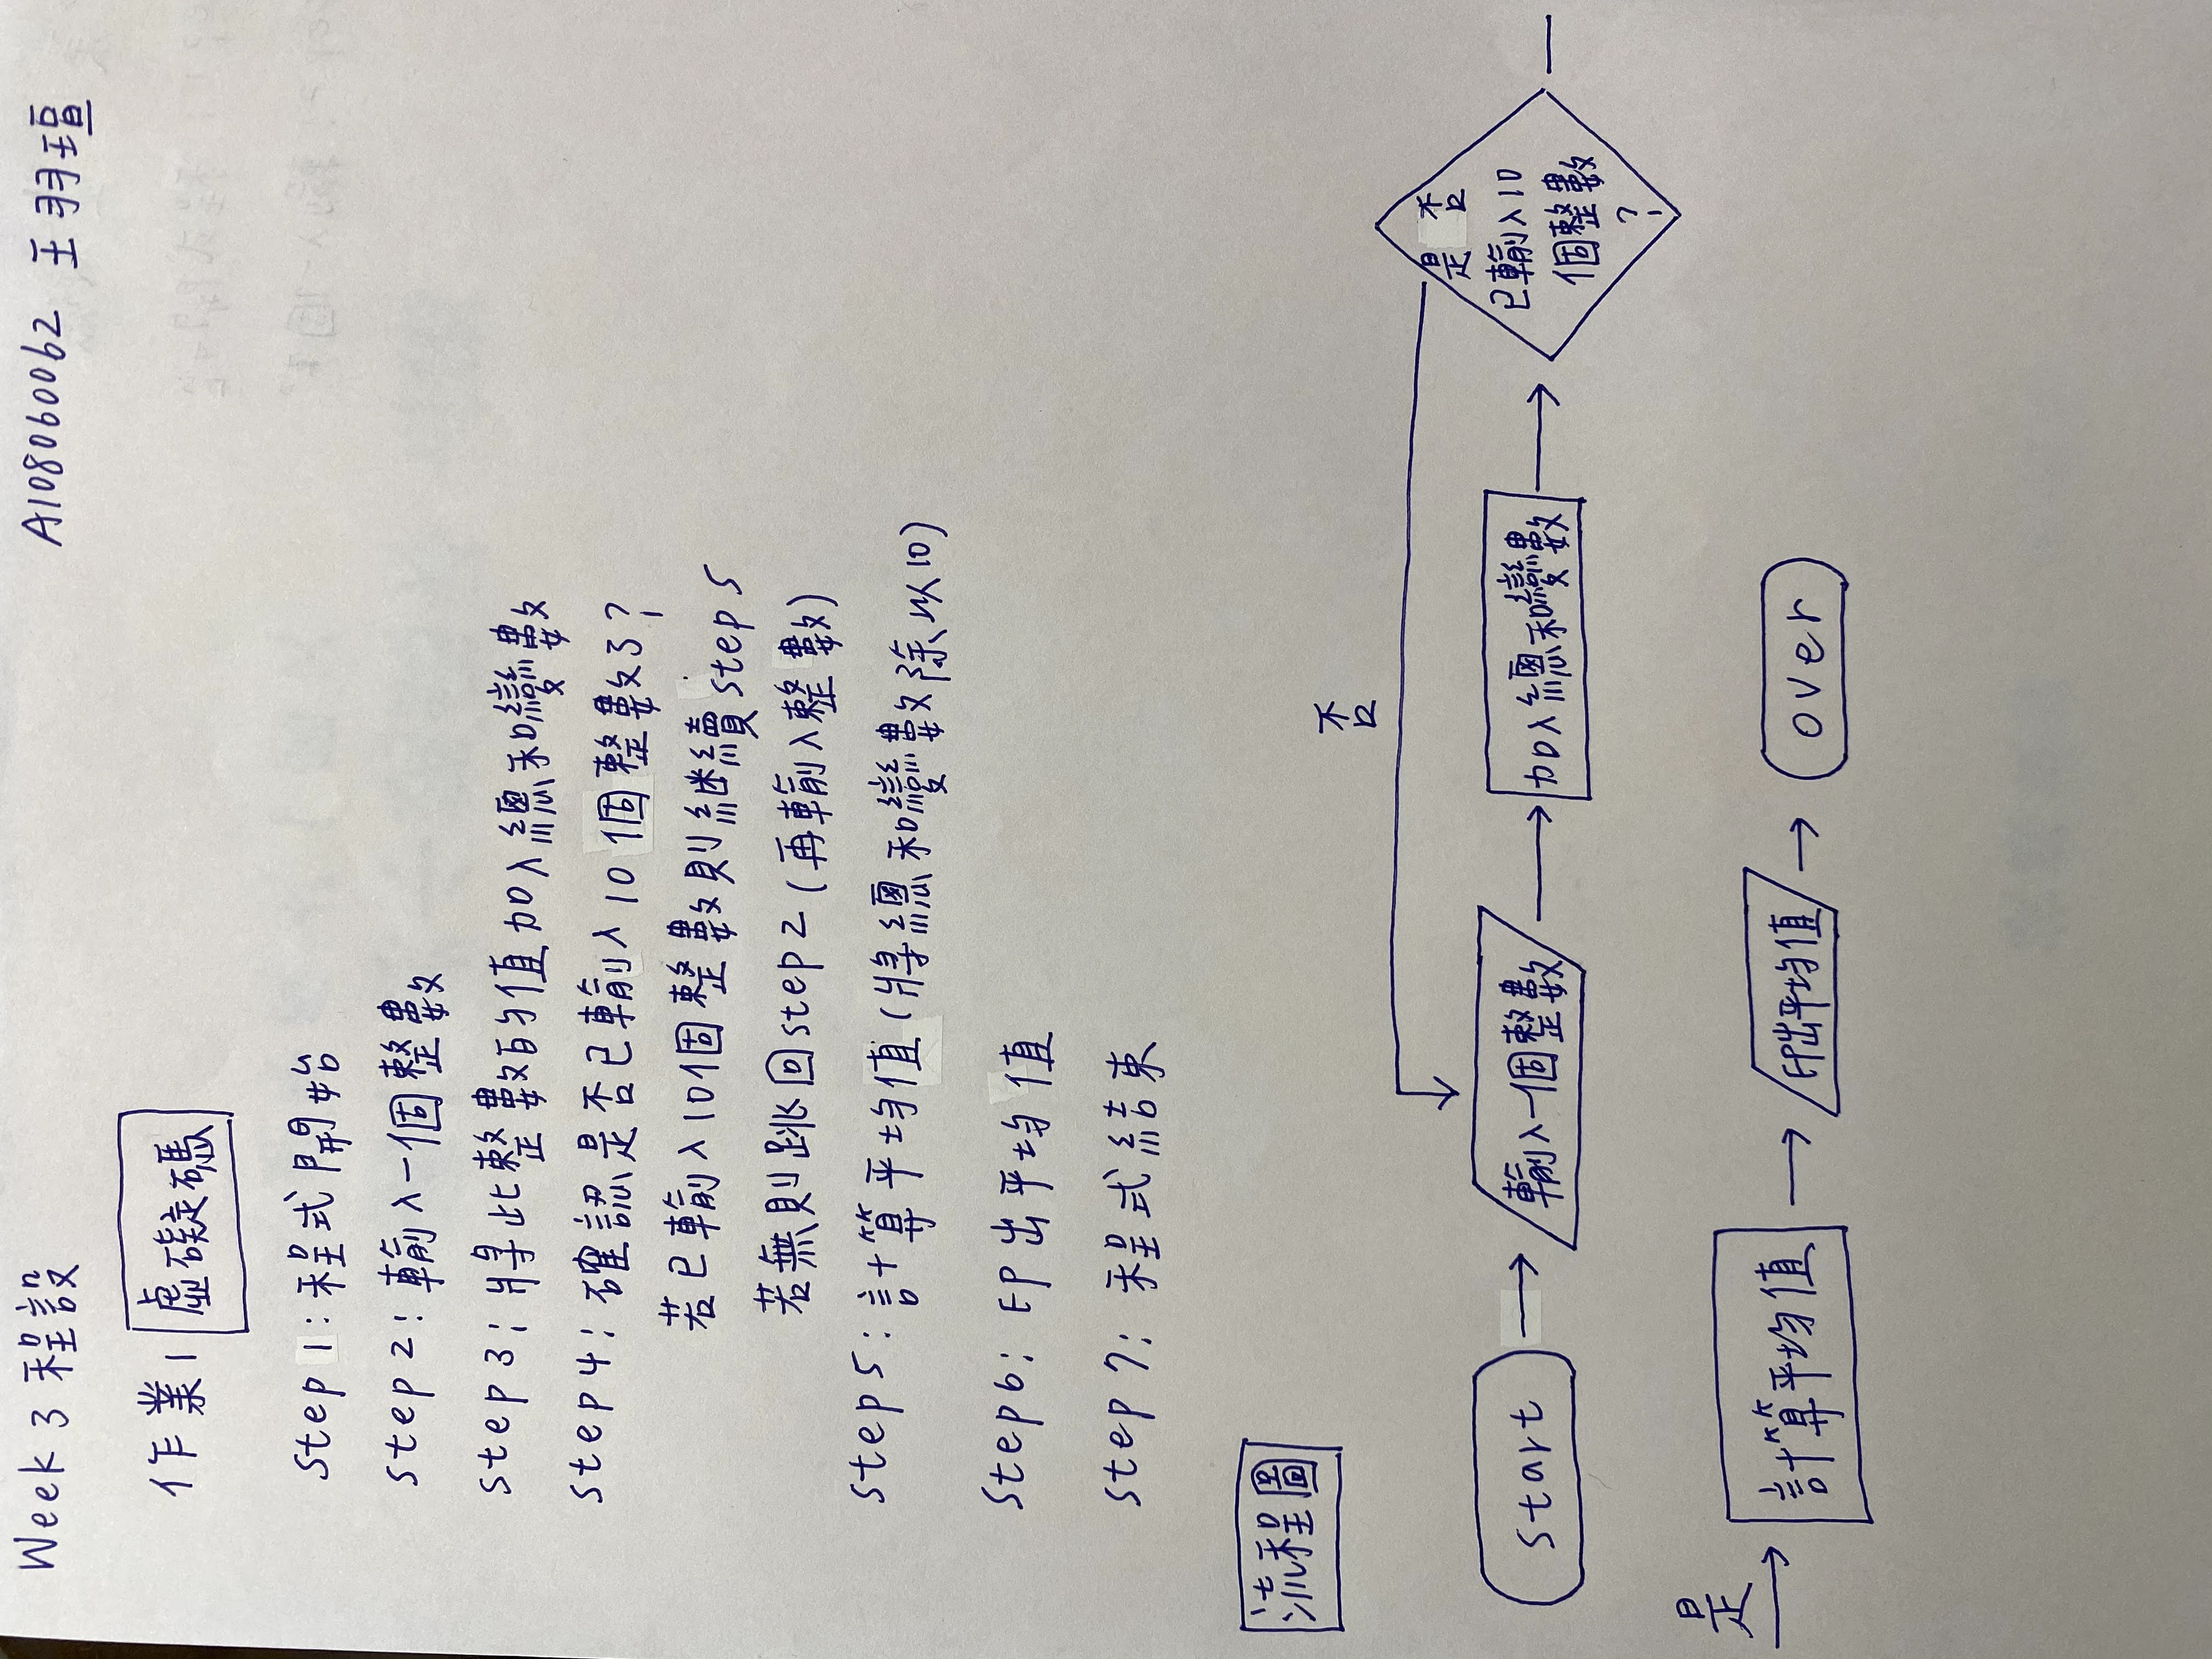 Week 3 程設
A108060062 王羽瑄
作業1 虛礙碼
step 1: 程式開始
step 2: 輸入一個整數
step 3: 將此整數的值加入總和變數
step 4: 確認是否已輸入10個整數了?
若已輸入10個整數則繼續step 5
若無則跳回step 2 (再輸入整數)
step 5: 計算平均值(將總和變數除以10)
step 6: 印出平均值
step 7: 程式結束
流程圖
否
start
輸入一個整數
加入總和變數
是否
已輸入10
個整數
?
是
計算平均值
印出平均值
over